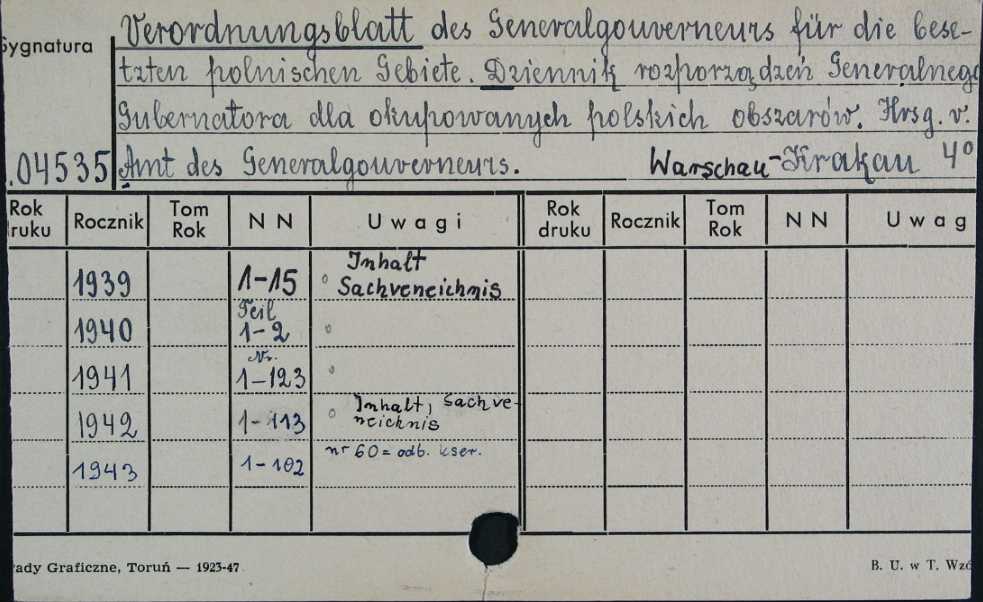 Verordnungsblatt des Generalgouverneurs für die bese-
Sygnatura
tzten polnischen Gebiete. Dziennik rozporządzeń Generalnego
Gubernatora dla okupowanych polskich obszarów. Hrsg. v.
.04535 Amt des Generalgouverneurs. Warschau-Krakau 4°
Rok druku Rocznik Tom Rok N N Uwagi Rok druku Rocznik Tom Rok N N Uwag
Inhalt
1939 1-15 Sachveneichnis
Teil
1940 1-2
Nr.
1941 1-123
Inhalt, Sachve-
1942 1-113 neichnis
1943 1-102 nr 60 = odb. kser.
ady Graficzne, Toruń — 1923-47 B. U. w T. Wzó